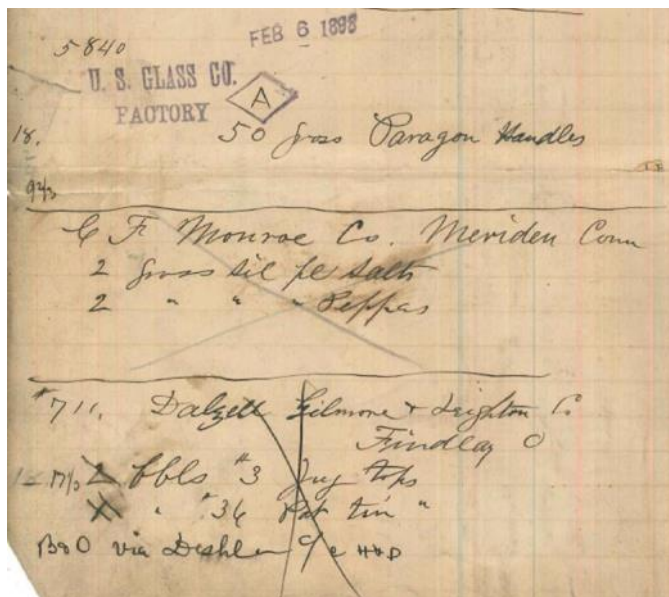 FEB 6 1898
5840
U. S. GLASS CO.
FACTORY A
18. 50 gross Paragon Handles
9 2/3
C F Monroe Co. Meriden Conn
2 gross sil pl Salts
2 " " " Peppers
#711. Dalzell Gilmore & Leighton Co
Findlay O
2 bbls #3 Jug tops
" #36 Pat tin "
B&O via Deshler c/o H&D